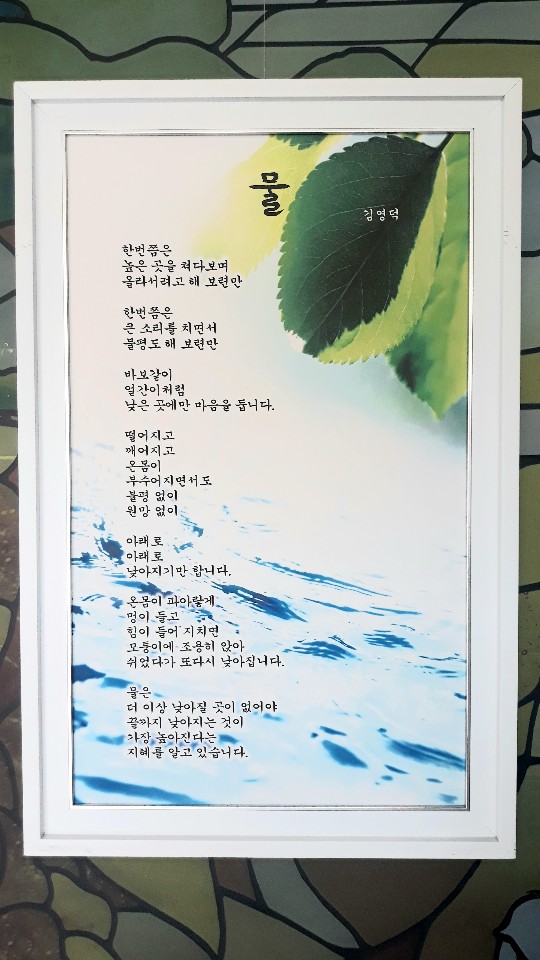 물
김영덕
한번쯤은
높은 곳을 쳐다보며
올라서려고 해 보련만
한번쯤은
큰 소리를 치면서
불평도 해 보련만
바보같이
얼간이처럼
낮은 곳에만 마음을 둡니다.
떨어지고
깨어지고
온몸이
부수어지면서도
불평 없이
원망 없이
아래로
아래로
낮아지기만 합니다.
온몸이 파아랗게
멍이 들고
힘이 들어 지치면
모퉁이에 조용히 앉아
쉬었다가 또다시 낮아집니다.
물은
더 이상 낮아질 곳이 없어야
끝까지 낮아지는 것이
가장 높아진다는
지혜를 알고 있습니다.